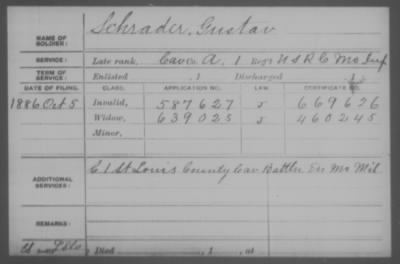 NAME OF SOLDIER: Schrader, Gustav
SERVICE: Late rank, Cav Co. A, 1 Reg't U S R C Mo Inf
TERM OF SERVICE: Enlisted , 1 Discharged , 1
DATE OF FILING. CLASS. APPLICATION NO. LAW. CERTIFICATE NO.
1886 Oct 5 Invalid, 587627 J 669626
Widow, 639025 J 460245
Minor,
ADDITIONAL SERVICES: E 1 St Louis County Cav Battln En Mo Mil
REMARKS:
Died , 1 , at